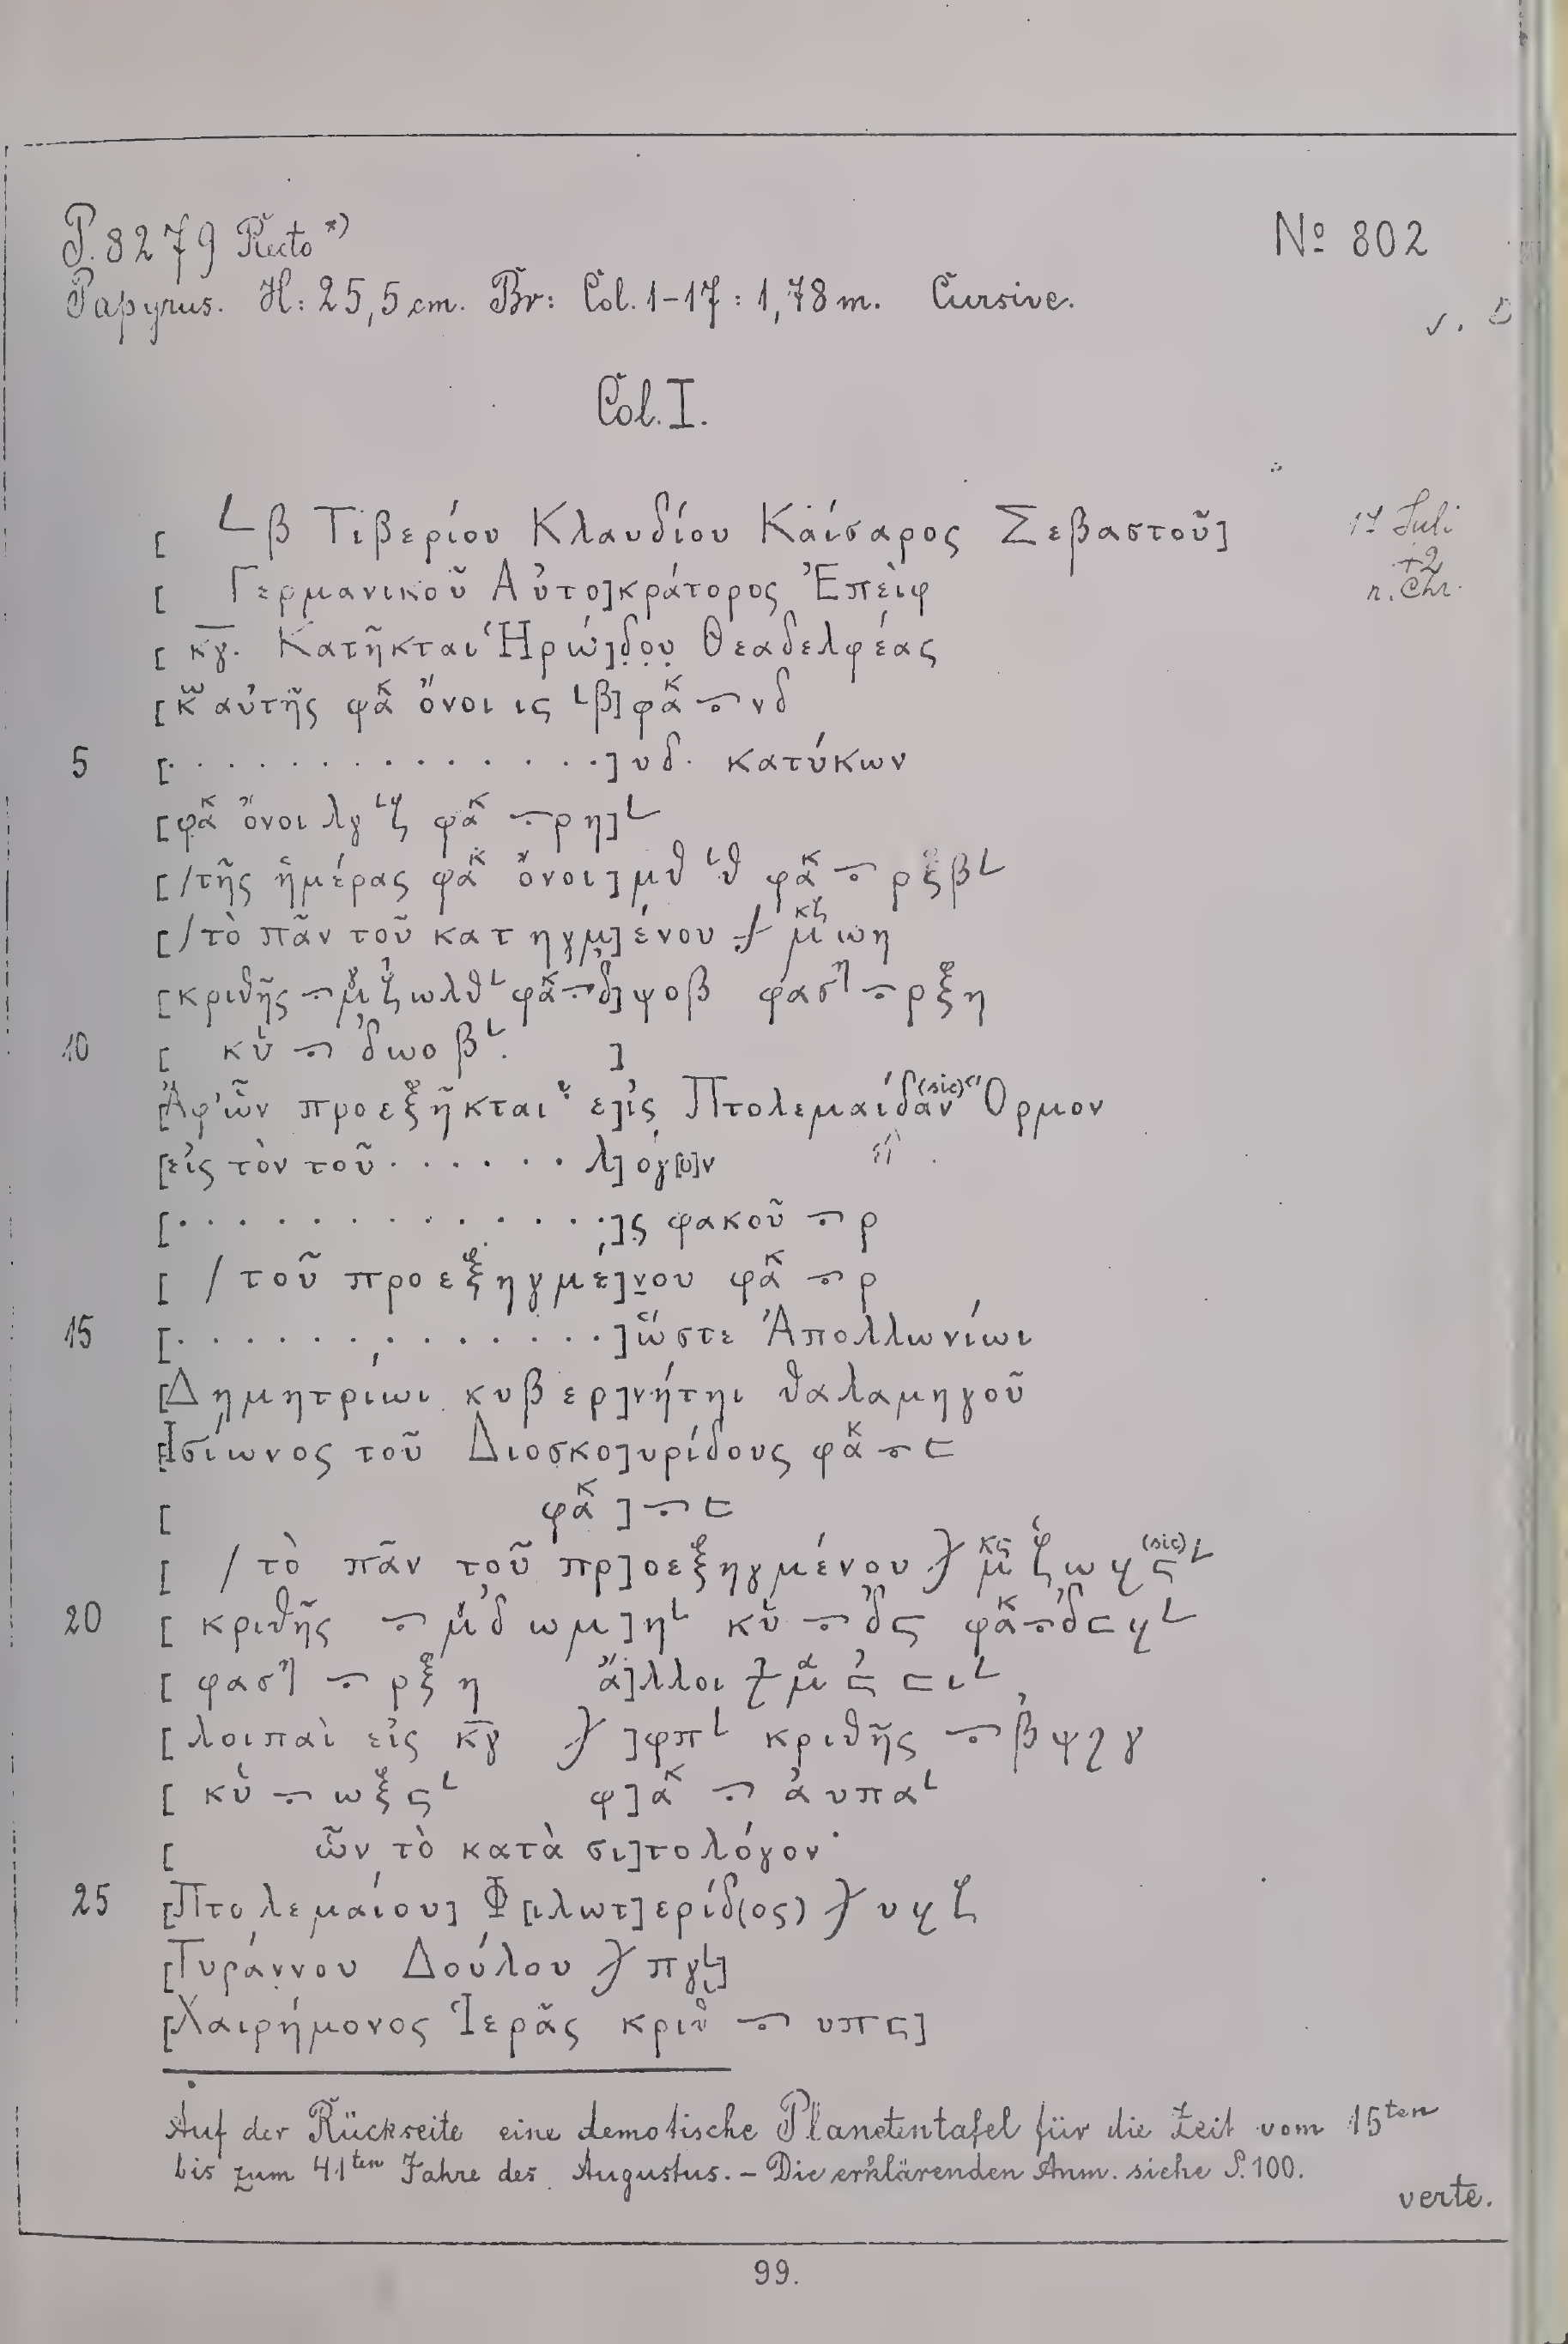 P. 8279 Recto *)
Nº 802
Papyrus. H: 25,5 cm. Br: Col. 1-17: 1,78 m. Cursive.
Col. I.
[ L β Τιβερίου Κλαυδίου Καίσαρος Σεβαστοῦ]
17 Juli
[ Γερμανικοῦ Αὐτο]κράτορος Ἐπεὶφ
42
n. Chr.
[ κγ. Κατῆκται Ἡρώ]δου Θεαδελφέας
[κ αὐτῆς φακ ὄνοι ις L β] φακ νδ
5 [. . . . . . . . . . . . . .] υδ. κατύκων
[φακ ὄνοι λγ Lζ φακ ρη] L
[/τῆς ἡμέρας φακ ὄνοι] μθ Lθ φακ ρξβ L
[/τὸ πᾶν τοῦ κατηγμ]ένου μκζ ωη
[κριθῆς μδ ζωλθ L φακ δ]ψοβ φαση ρξη
10 [ κυ δωοβ L. ]
[Ἀφ' ὧν προεξῆκται ε]ἰς Πτολεμαίδαν (sic) Ὅρμον
[εἰς τὸν τοῦ . . . . . . λ]όγ[ο]ν
[. . . . . . . . . . . . . .]ς φακοῦ ρ
[ / τοῦ προεξηγμέ]νου φακ ρ
15 [. . . . . . . . . . . . . .] ὥστε Ἀπολλωνίωι
[Δημητρίωι κυβερ]νήτηι θαλαμηγοῦ
[Ἰσίωνος τοῦ Διοσκο]υρίδους φακ ⊏
[ φακ ] ⊏
[ / τὸ πᾶν τοῦ πρ]οεξηγμένου μκς ζωϥς (sic) L
20 [ κριθῆς μδ δωμ]η L κυ δς φακ δ⊏ϥ L
[ φαση ρξη ἄ]λλοι μα ς ⊏ι L
[ λοιπαὶ εἰς κγ ]φπ L κριθῆς βψϥγ
[ κυ ωξς L φ]ακ αυπα L
[ ὧν τὸ κατὰ σι]τολόγον·
25 [Πτολεμαίου] Φ[ιλωτ]ερίδ(ος) υϥζ
[Τυράννου Δούλου πγL]
[Χαιρήμονος Ἱερᾶς κριθ υπς]
Auf der Rückseite eine demotische Planetentafel für die Zeit vom 15ten
bis zum 41ten Jahre des Augustus. – Die erklärenden Anm. siehe S. 100.
verte.
99.